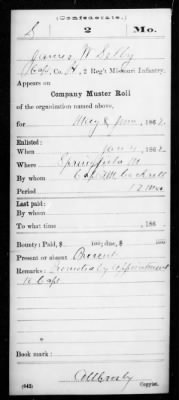 (Confederate.)
S 2 Mo.
James W Selby
Capt, Co. H, 2 Reg't Missouri Infantry.
Appears on
Company Muster Roll
of the organization named above,
for May & June, 1862.
Enlisted:
When Jan 7, 1862.
Where Springfield Mo.
By whom Capt F M Cockrell
Period 12 Mos
Last paid:
By whom
To what time , 186 .
Bounty: Paid, $ 100; due, $ 100
Present or absent Present
Remarks: Promoted by appointment
to Capt
Book mark:
(642) Copyist.